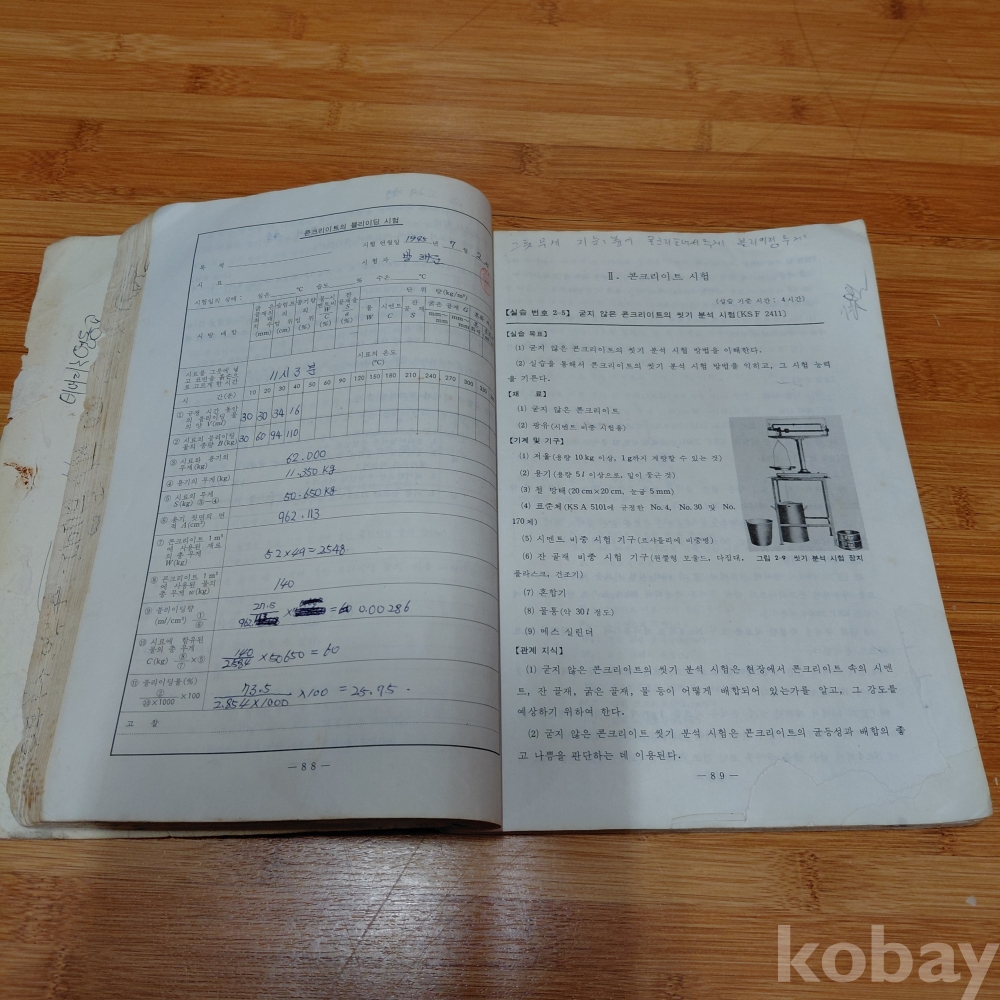 콘크리트의 블리이딩 시험
시험 연월일 1985년 7월 2
목 적
시 험 자
시 료
시험일의 상태 : 실온 ℃ 습도 % 수온 ℃
단 위 량 (kg/m³)
시 방 배 합
물 W
시멘트 C
시료를 그릇에 넣고 표면을 흙손으로 고르게 한 시간
11시 3분
시료의 온도 (℃)
시 간(분) 10 20 30 40 50 60 90 120 150 180 210 240 270
① 규정 시간 동안의 블리이딩 물의 양 V(ml) 30 30 34 16
② 시료의 블리이딩 물의 총량 B(kg) 30 60 94 110
③ 시료와 용기의 무게(kg) 62.000
④ 용기의 무게(kg) 11.350 kg
⑤ 시료의 무게 S(kg) ③-④ 50.650 kg
⑥ 용기 윗면의 면적 A(cm²) 962.113
⑦ 콘크리이트 1m³에 사용된 재료의 총 무게 W(kg) 52×49=2548
⑧ 콘크리이트 1m³에 사용된 물의 총 무게 w(kg) 140
⑨ 블리이딩량 (ml/cm²) ①/⑥ 0.00286
⑩ 시료에 함유된 물의 총 무게 C(kg) ⑧/⑦ ×⑤ ×50650=60
⑪ 블리이딩률(%) ②/⑩×1000 ×100 73.5/2.854×1000 ×100 = 25.75.
고 찰
—88—
Ⅱ. 콘크리이트 시험
(실습 기준 시간 : 4시간)
[실습 번호 2-5] 굳지 않은 콘크리이트의 씻기 분석 시험(KS F 2411)
[실습 목표]
(1) 굳지 않은 콘크리이트의 씻기 분석 시험 방법을 이해한다.
(2) 실습을 통해서 콘크리이트의 씻기 분석 시험 방법을 익히고, 그 시험 능력
을 기른다.
[재 료]
(1) 굳지 않은 콘크리이트
(2) 광유(시멘트 비중 시험용)
[기계 및 기구]
(1) 저울(용량 10kg 이상, 1g까지 계량할 수 있는 것)
(2) 용기(용량 5l 이상으로, 밑이 둥근 것)
(3) 철 방배(20cm×20cm, 눈금 5mm)
(4) 표준체(KS A 5101에 규정한 No. 4, No. 30 및 No.
170체)
(5) 시멘트 비중 시험 기구(르샤틀리에 비중병)
(6) 잔 골재 비중 시험 기구(원뿔형 모울드, 다짐대,
플라스크, 건조기)
(7) 혼합기
(8) 물통(약 30l 정도)
(9) 메스 실린더
그림 2-9 씻기 분석 시험 장치
[관계 지식]
(1) 굳지 않은 콘크리이트의 씻기 분석 시험은 현장에서 콘크리이트 속의 시멘
트, 잔 골재, 굵은 골재, 물 등이 어떻게 배합되어 있는가를 알고, 그 강도를
예상하기 위하여 한다.
(2) 굳지 않은 콘크리이트의 씻기 분석 시험은 콘크리이트의 균등성과 배합의 좋
고 나쁨을 판단하는 데 이용된다.
—89—
kobay